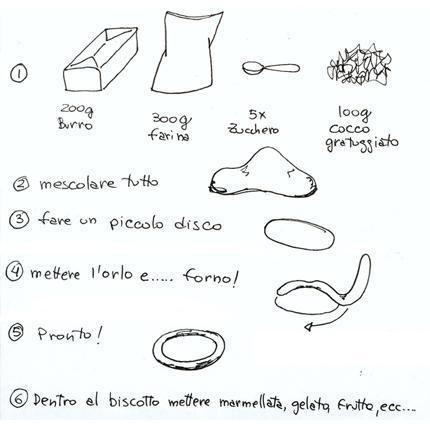 ①
200g
Burro
300g
farina
5x
Zucchero
100g
cocco
gratuggiato
② mescolare tutto
③ fare un piccolo disco
④ mettere l'orlo e..... forno!
⑤ Pronto!
⑥ Dentro al biscotto mettere marmellata, gelato, frutta, ecc....